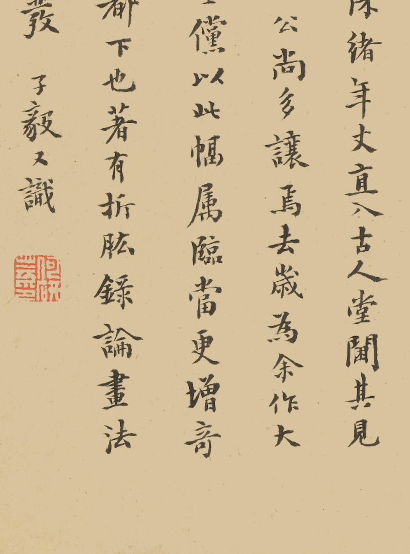 緒年丈直入古人堂閫其見
公尚多讓焉去歲為余作大
儻以此幅属臨當更增奇
都下也著有折肱錄論畫法
發
子毅又識